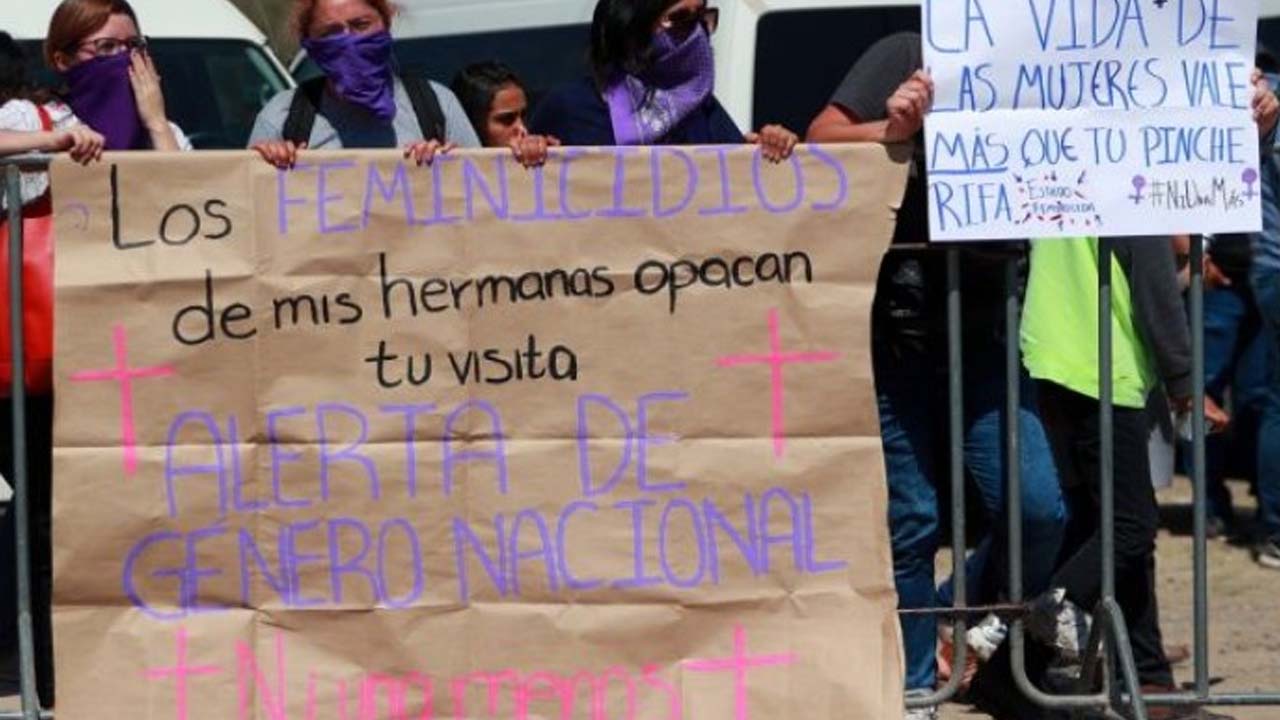 Los FEMINICIDIOS
de mis hermanas opacan
tu visita
ALERTA DE
GÉNERO NACIONAL
Ni una menos
LA VIDA DE
LAS MUJERES VALE
MÁS QUE TU PINCHE
RIFA. ESTADO
FEMINICIDA
#NiUnaMás